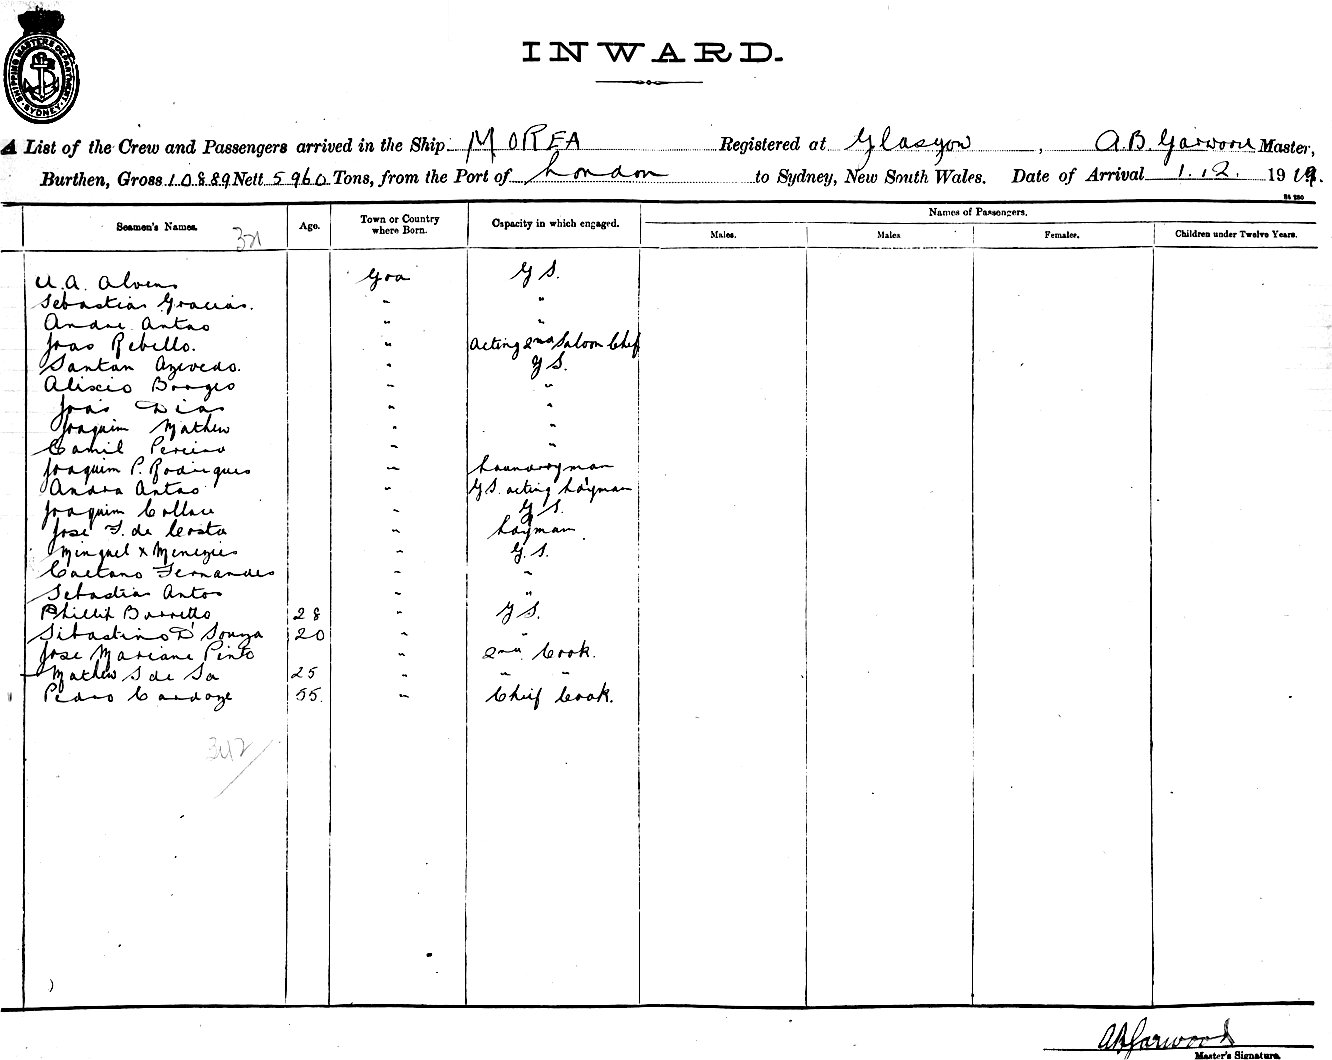 SHIPPING MASTERS DEPARTMENT SYDNEY
INWARD.
A List of the Crew and Passengers arrived in the Ship MOREA Registered at Glasgow, A.B. Garwood Master,
Burthen, Gross 10889 Nett 5960 Tons, from the Port of London to Sydney, New South Wales. Date of Arrival 1.12. 1919.
Seamen's Names. Age. Town or Country where Born. Capacity in which engaged. Names of Passengers.
Males. Males Females. Children under Twelve Years.
321
U.A. Alvens Goa G S.
Sebastiao Gracias. " "
Andre Antao " "
Joao Rebello. " Acting 2nd Saloon Chef
Santan Azevedo. " G S.
Alixio Borges " "
Joao Dias " "
Joaquim Mathew " "
Camil Pereira " "
Joaquim P. Rodrigues " Laundryman
Andra Antao " G S. acting L'dyman
Joaquim Collaco " G S.
Jose F. de Costa " L'dyman.
Minguel x Menezies " G. S.
Caetano Fernandes " "
Sebastiao Antos " "
Phillip Barretto 28 " G S.
Sibastino D'Souza 20 " "
Jose Mariane Pinto " 2nd Cook.
Mathew S de Sa 25 " " "
Pedro Cardoze 55. " Chief Cook.
342
ABGarwood
Master's Signature.